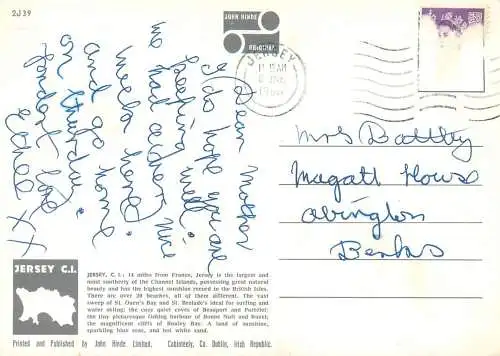 2J39
JOHN HINDE
ORIGINAL
JERSEY
Dear Mother
I do hope you are
keeping well.
we had a very nice
weeks
and go home
on
fondest love
Ethel XX
Mrs Battley
Magatt House
Abington
Berks
JERSEY C.I.
JERSEY, C. I.: 14 miles from France, Jersey is the largest and
most southerly of the Channel Islands, possessing great natural
beauty and has the highest sunshine record in the British Isles.
There are over 20 beaches, all of them different. The vast
sweep of St. Ouen's Bay and St. Brelade's ideal for surfing and
water skiing; the cosy quiet coves of Beauport and Portelet;
the tiny picturesque fishing harbour of Bonne Nuit and Rozel;
the magnificent cliffs of Bouley Bay. A land of sunshine,
sparkling blue seas, and hot white sand.
Printed and Published by John Hinde Limited, Cabinteely, Co. Dublin, Irish Republic.